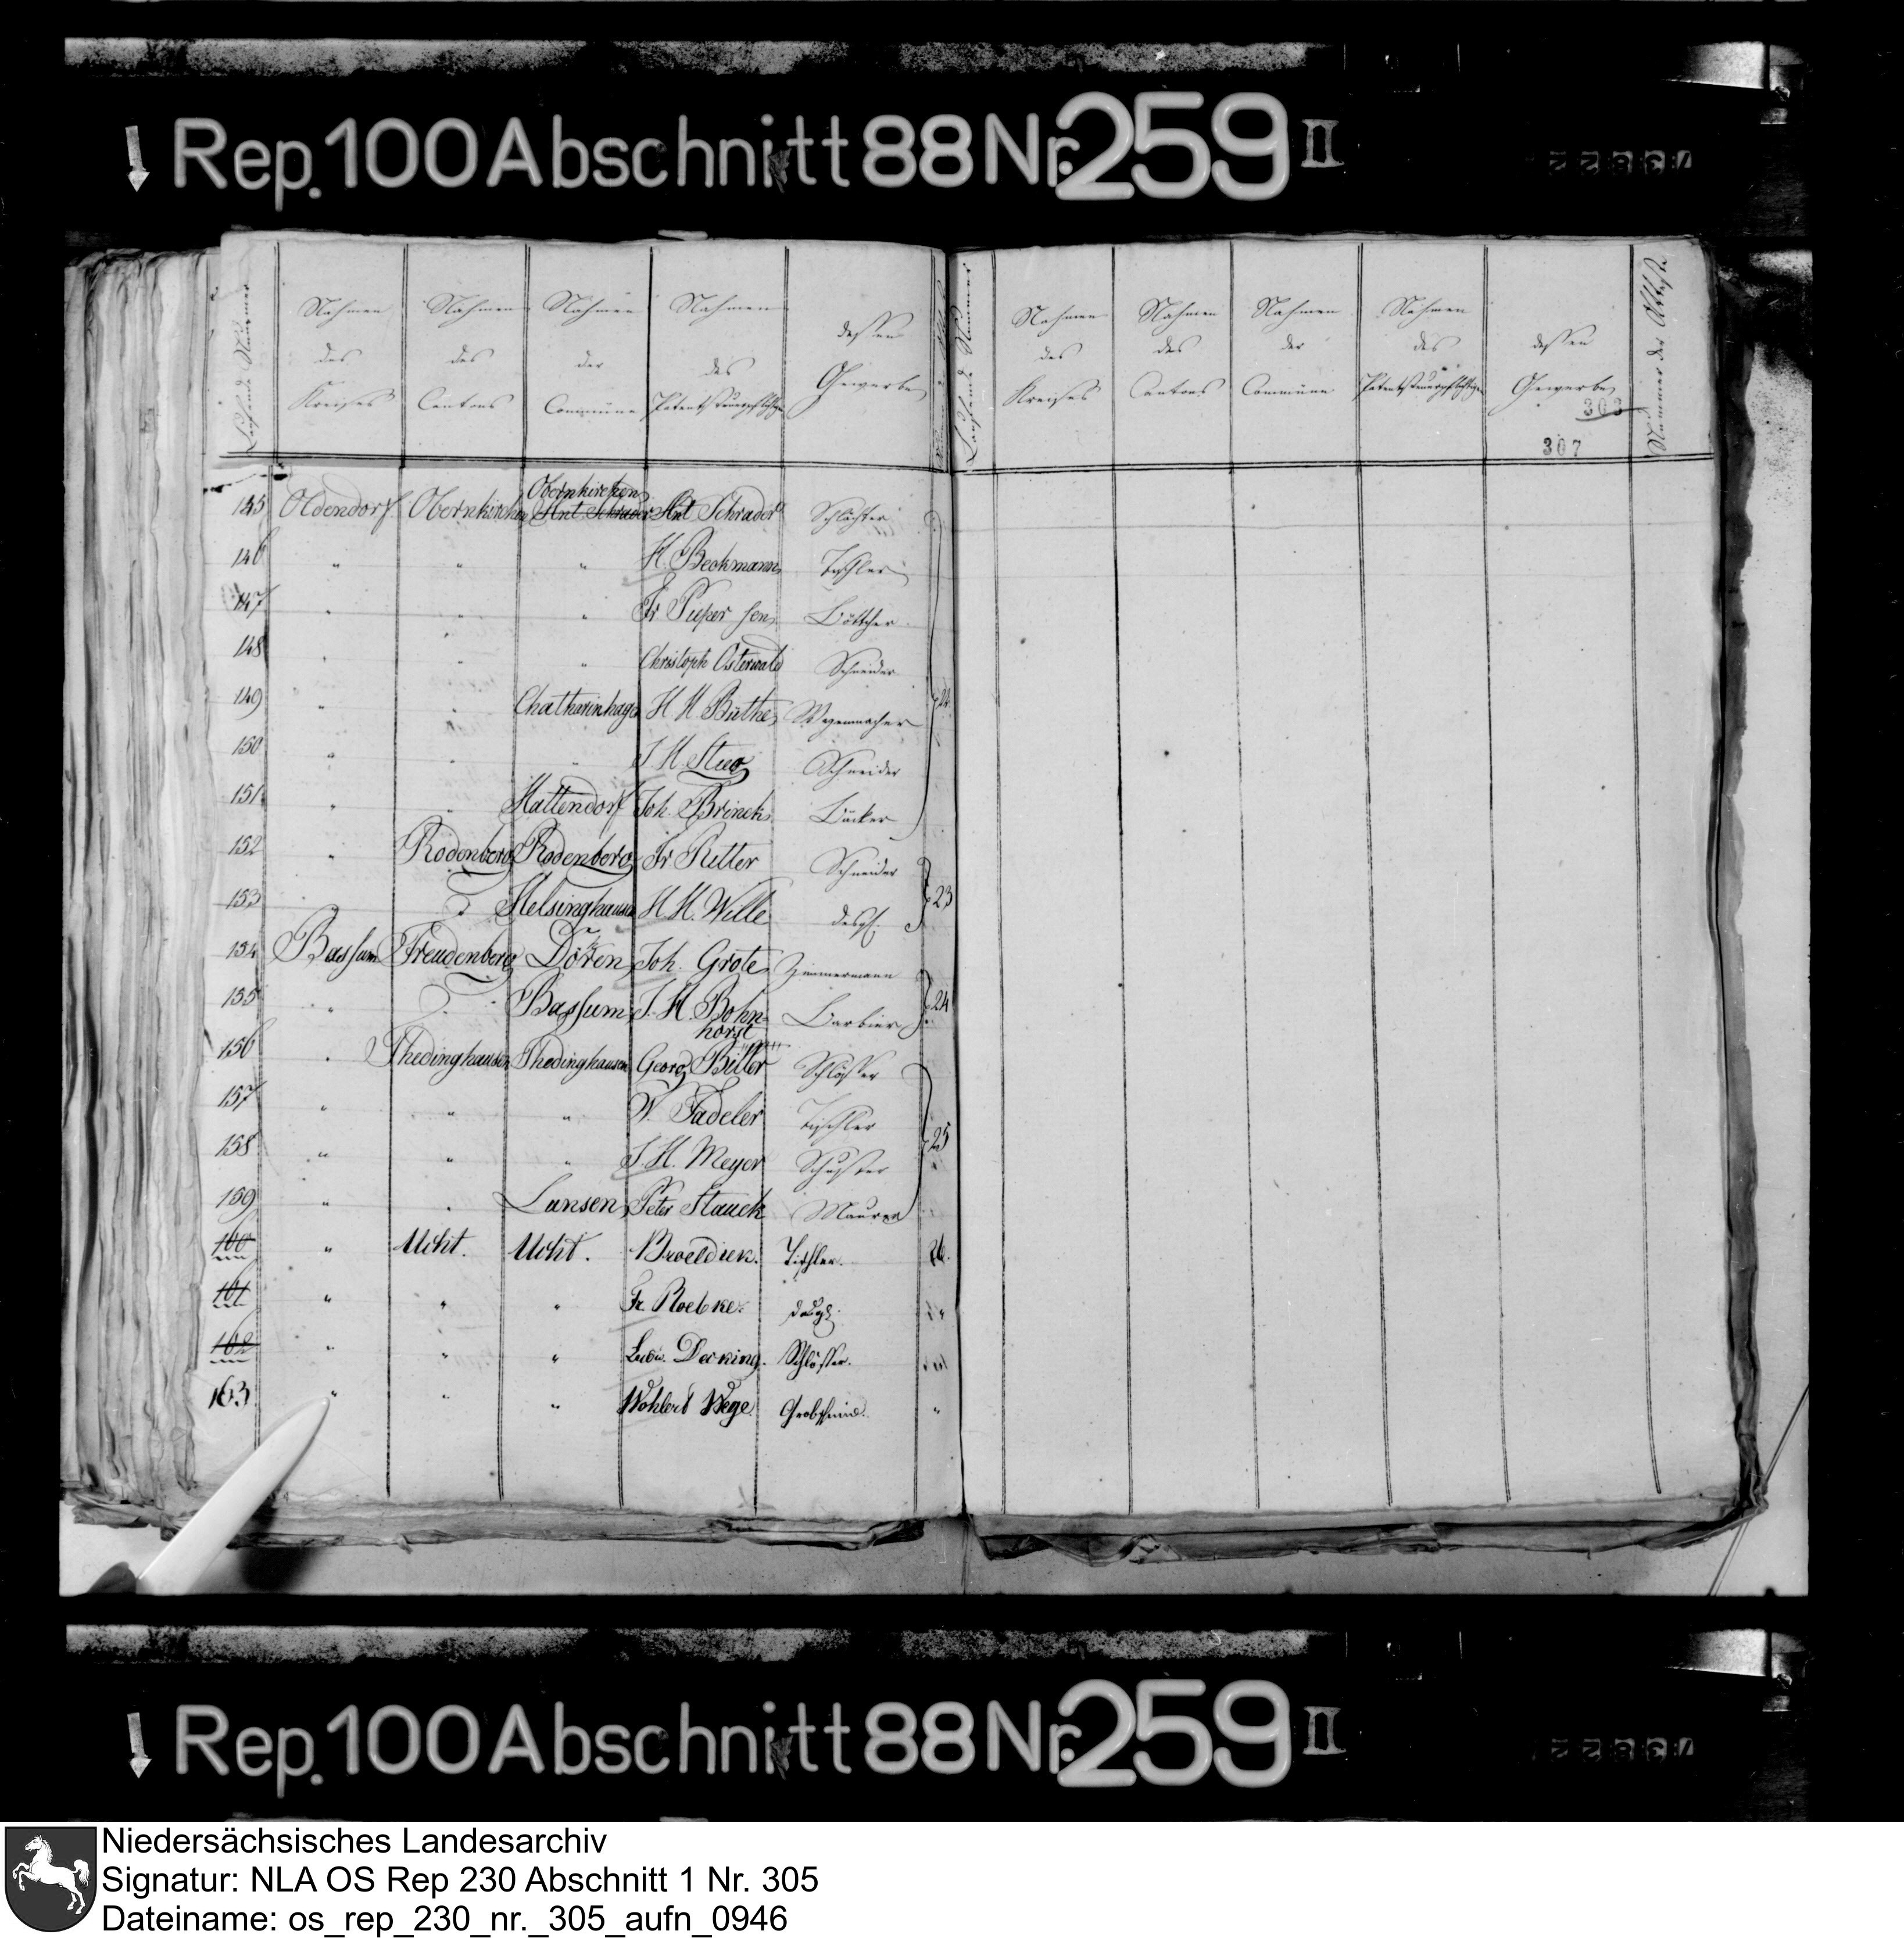 Rep. 100 Abschnitt 88 Nr. 259 II
73822
Laufende Nummer | Nahmen des Kreises | Nahmen des Cantons | Nahmen der Commüne | Nahmen des Patentsteuerpflichtigen | dessen Gewerbe
145 Oldendorf Obernkirchen Obernkirchen Ant. Schrader Ant Schrader Schlächter
146 " " " H. Beckmann Tischler
147 " " " Fr Puper sen. Böttcher
148 " " " Christoph Osterwald Schneider
149 " " Chatharinhagen H H Büthe Wagenmacher
150 " " " J H Schneider
151 " " Hattendorf Joh. Brinck Bäcker
152 " Rodenberg Rodenberg Fr Ritter Schneider
153 Helsinghausen H H. Wille desgl. 23
154 Bassum Freudenberg Dören Joh. Grote Zimmermann
155 " " Bassum J. H. Bohnhorst Barbier 24
156 " Thedinghausen Thedinghausen Georg Biller Schlösser
157 " " " W. Fadeler Tischler
158 " " " J. H. Meyer Schuster 25
159 " " Lunsen Peter Stauck Maurer
160 " Ucht. Ucht. Broeldiek. Tischler. 26.
161 " " " Fr. Roebke. desgl. "
162 " " " Ludw. Decking. Schlösser. "
163 " " " Wohlerd Wege Grobschmid. "
Laufende Nummer | Nahmen des Kreises | Nahmen des Cantons | Nahmen der Commüne | Nahmen des Patentsteuerpflichtigen | dessen Gewerbe | Nummer der Atteste
303
307
Rep. 100 Abschnitt 88 Nr. 259 II
73822
Niedersächsisches Landesarchiv
Signatur: NLA OS Rep 230 Abschnitt 1 Nr. 305
Dateiname: os_rep_230_nr._305_aufn_0946